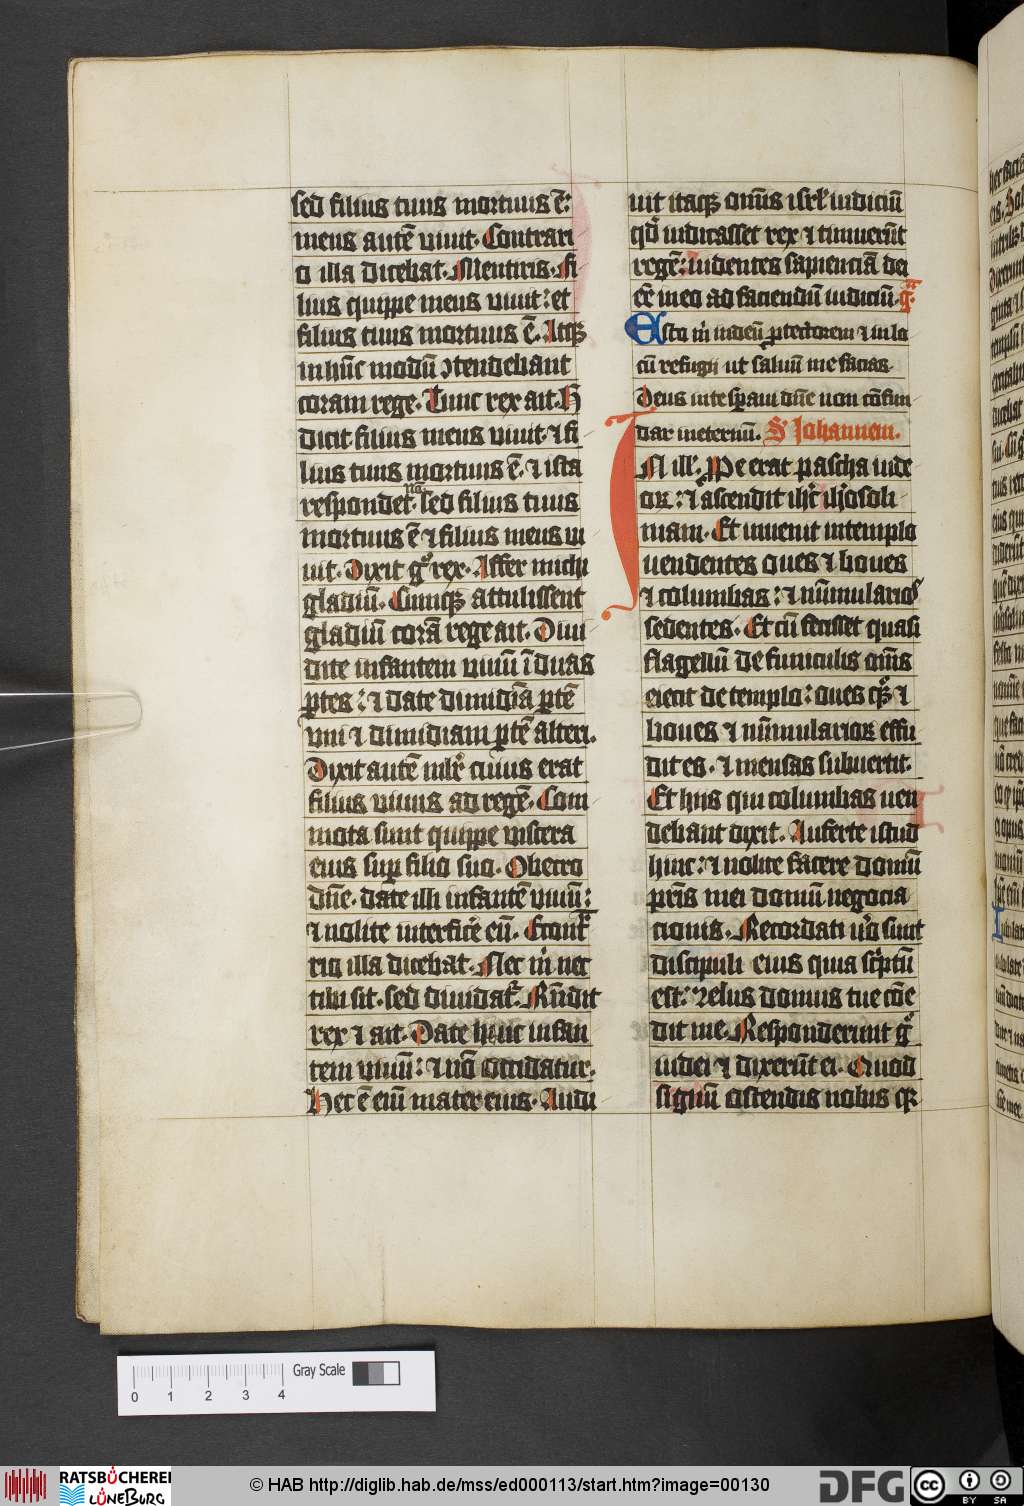 sed filius tuus mortuus ē:
meus autē viuit. Contrari
o illa dicebat. Mentiris. Fi
lius quippe meus viuit: et
filius tuus mortuus ē. Atqꝫ
in hūc modū ɔtendebant
coram rege. Tunc rex ait. H
dicit filius meus viuit. ⁊ fi
lius tuus mortuus ē. ⁊ ista
respondet. sed filius tuus
mortuus ē ⁊ filius meus vi
uit. Dixit gͦ rex. Affer michi
gladiū. Cumqꝫ attulissent
gladiū corā rege ait. Diui
dite infantem viuū ī duas
ꝑtes: ⁊ date dimidiā ꝑtē
vni ⁊ dimidiam ꝑtē alteri.
Dixit autē mlr̄ cuius erat
filius viuus ad regē. Com
mota sunt quippe viscera
eius suꝑ filio suo. Obecro
dn̄e. date illi infantē viuū:
⁊ nolite interfic̄e eū. Econt̄
rio illa dicebat. Nec m̄ nec
tibi sit. sed diuidat̄. Rn̄dit
rex ⁊ ait. Date huic infan
tem viuū: ⁊ nō occidatur.
Hec ē eī mater eius. Audi
uit itaqꝫ om̄is isrl̄ iudiciū
qd̄ iudicasset rex ⁊ timuerūt
regē: uidentes sapienciā dei
eē in eo ad faciendū iudiciū. gͣ
Esto m̄ in deū ꝓtectorem ⁊ in lo
cū refugii ut saluū me facias.
Deus in te sꝑaui dn̄e non cōfun
dar in eternū. S Johannem.
IN ill'. Ꝓpe erat pascha iude
oꝝ: ⁊ ascendit ihc̄ ih̄osoli
mam. Et inuenit in templo
uendentes oues ⁊ boues
⁊ columbas: ⁊ nūmularios
sedentes. Et cū fecisset quasi
flagellū de funiculis om̄s
eiecit de templo: oues qͦꝫ ⁊
boues ⁊ nūmularioꝝ effu
dit es. ⁊ mensas subuertit.
Et hiis qui columbas uen
debant dixit. Auferte istud
hinc: ⁊ nolite facere domū
pr̄is mei domū negocia
cionis. Recordati vͦo sunt
discipuli eius quia sc̄ptū
est: zelus domus tue cōe
dit me. Responderunt gͦ
iudei ⁊ dixerūt ei. Quod
signū ostendis nobis qꝛ
0 1 2 3 4 Gray Scale
RATSBÜCHEREI
LÜNEBURG
© HAB http://diglib.hab.de/mss/ed000113/start.htm?image=00130
DFG
cc BY SA